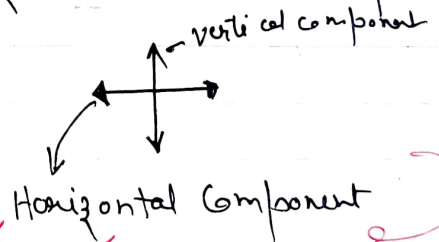 vertical component
Horizontal Component